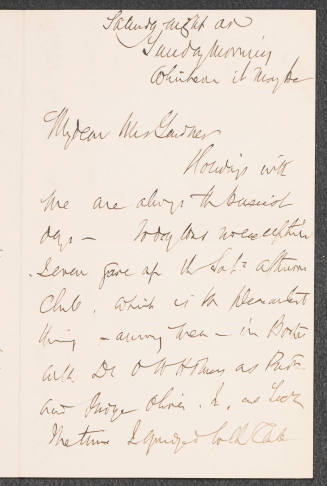 Saturday night or
Sunday Morning
Whichever it may be
My dear Mrs Gardner
Holidays with
me are always the busiest
days - today was no exception
I even gave up the Sat. afternoon
Club, which is the pleasantest
thing - among men - in Boston
with Dr O W Holmes as Presdt
and Judge Oliver. Jr, as Secty
The time I grudged to the Club